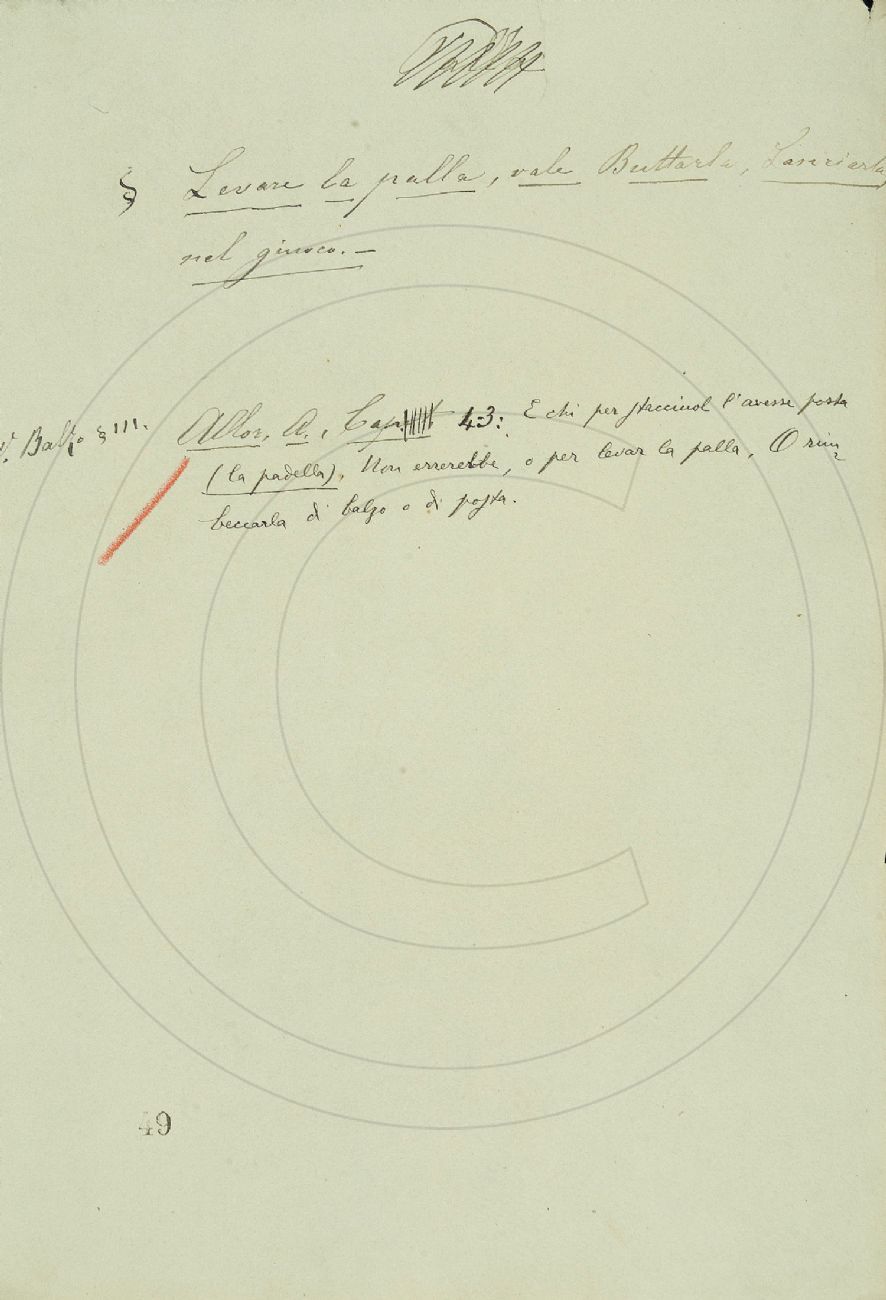 § Levare la palla, vale Buttarla, Lasciarla
nel giuoco. –
V. Balzo § III. Allor, A., Cap. 43: E chi per staccinol l'avesse posta
(la padella), Non errerebbe, o per levar la palla, O rim=
beccarla di balzo o di posta.
49